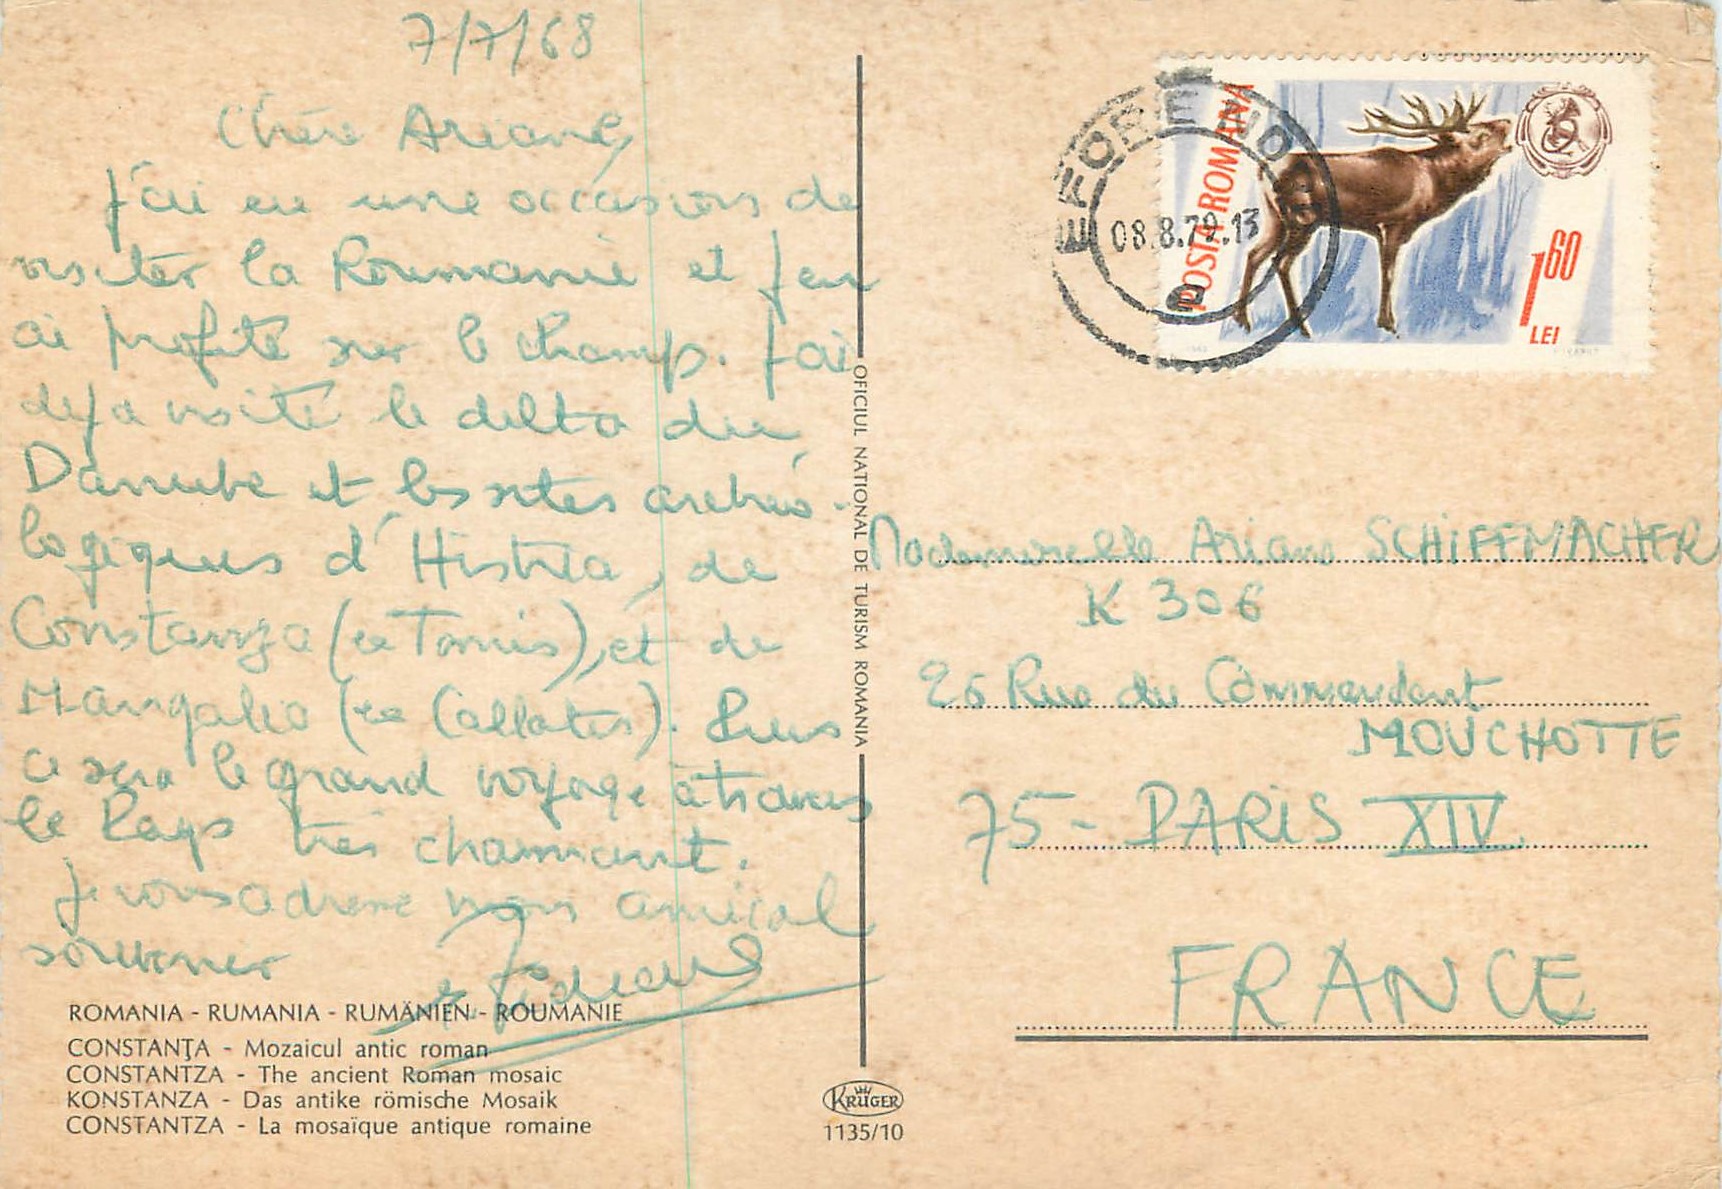 7/7/68
Chère Ariane,
J'ai eu une occasions de
visiter la Roumanie et j'en
ai profité sur le champ. J'ai
deja visité le delta du
Danube et les sites archéo-
logiques d'Histria, de
Constanza (ex Tomis), et de
Mangalia (ex Callatis). Puis
ce sera le grand voyage à travers
le Pays très charmant.
Je vous adresse mon amical
souvenir
ROMANIA - RUMANIA - RUMÄNIEN - ROUMANIE
CONSTANŢA - Mozaicul antic roman
CONSTANTZA - The ancient Roman mosaic
KONSTANZA - Das antike römische Mosaik
CONSTANTZA - La mosaïque antique romaine
OFICIUL NATIONAL DE TURISM ROMANIA
KRÜGER
1135/10
EFORIE NO
08.8.79.13
POSTA ROMANA
1 60
LEI
Mademoiselle Ariane SCHIFFMACHER
K 306
26 Rue du Commandant
MOUCHOTTE
75 - PARIS XIV
FRANCE